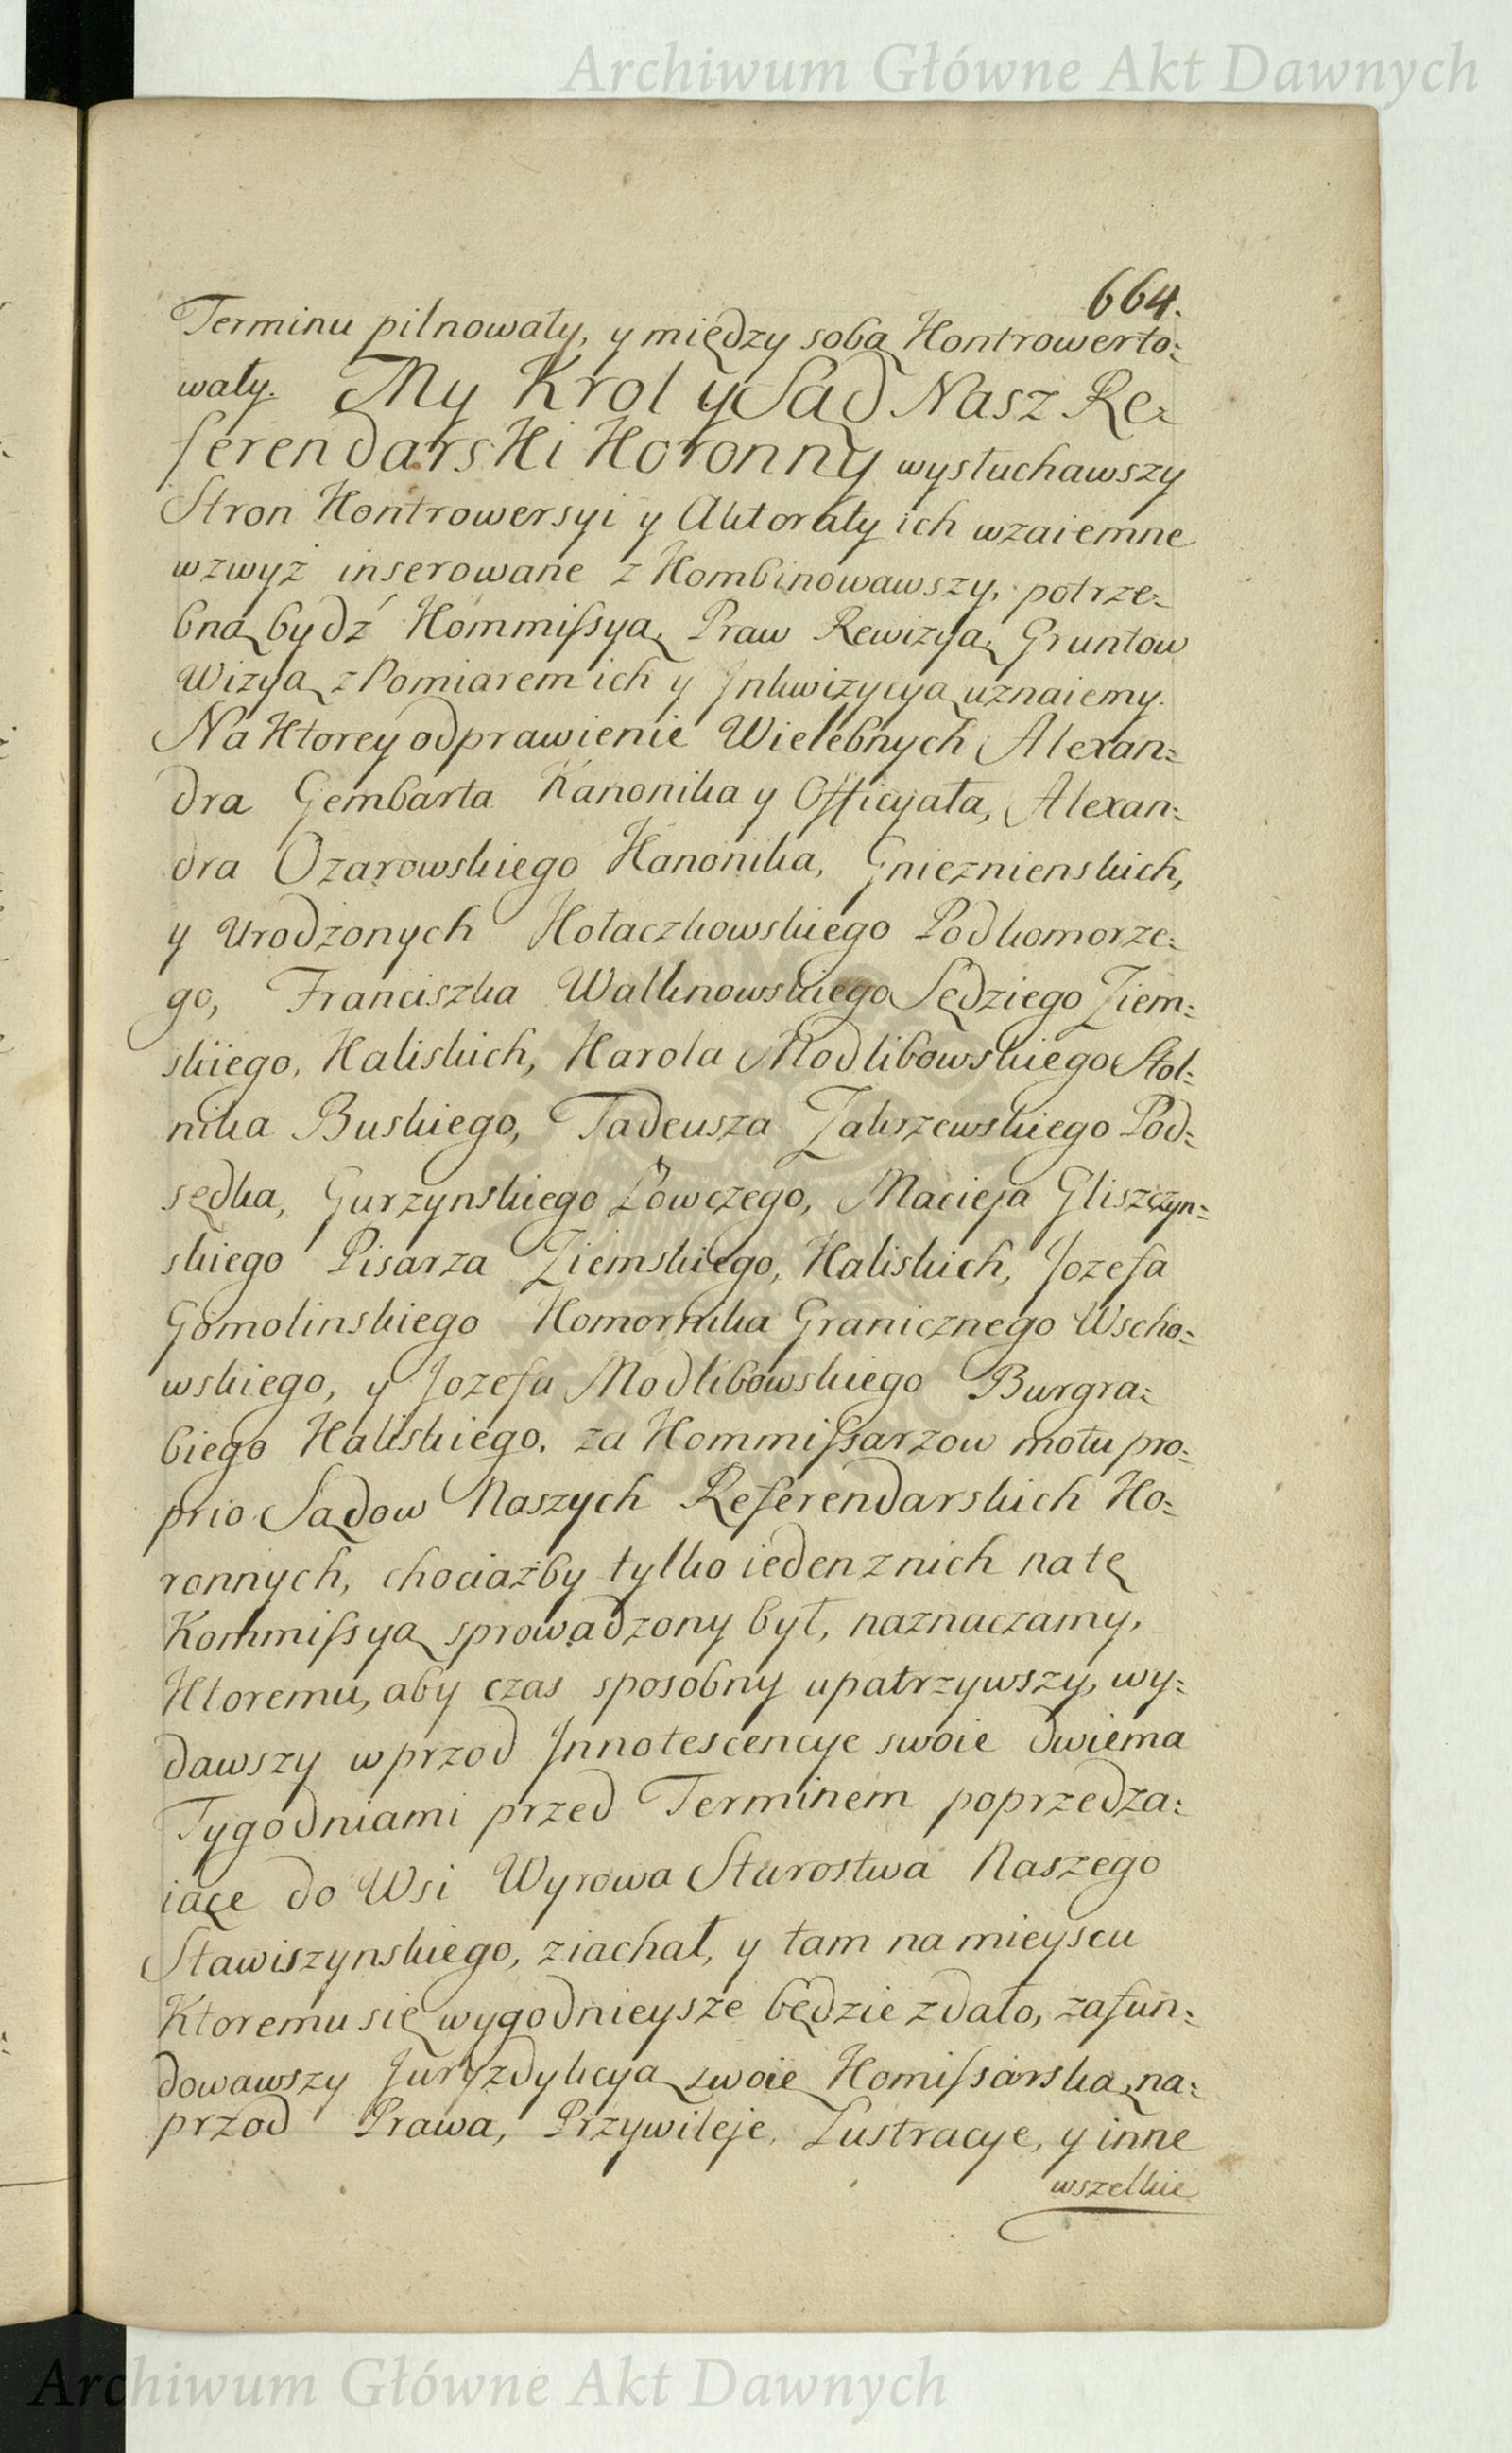 Archiwum Główne Akt Dawnych
664.
Terminu pilnowały, y między sobą Kontrowerto=
wały. My Krol y Sąd Nasz Re=
ferendarski Koronny wysłuchawszy
Stron Kontrowersyi y Aktoraty ich wzaiemne
wzwyż inserowane z Kombinowawszy, potrze=
bną bydź Kommissyą, Praw Rewizyą, Gruntow
Wizyą z Pomiarem ich y Inkwizycyą uznaiemy.
Na Ktorey odprawienie Wielebnych Alexan=
dra Gembarta Kanonika y Officyała, Alexan=
dra Ozarowskiego Kanonika, Gnieznienskich,
y Urodzonych Kołaczkowskiego Podkomorze=
go, Franciszka Walknowskiego Sędziego Ziem=
skiego, Kaliskich, Karola Modlibowskiego Stol=
nika Buskiego, Tadeusza Zakrzewskiego Pod=
sędka, Gurzynskiego Łowczego, Macieja Gliszczyn=
skiego Pisarza Ziemskiego, Kaliskich, Jozefa
Gomolinskiego Komornika Granicznego Wscho=
wskiego, y Jozefa Modlibowskiego Burgra=
biego Kaliskiego, za Kommissarzow motu pro=
prio Sądow Naszych Referendarskich Ko=
ronnych, chociażby tylko ieden z nich na tę
Kommissyą sprowadzony był, naznaczamy,
Ktoremu, aby czas sposobny upatrzywszy, wy=
dawszy wprzod Innotescencye swoie dwiema
Tygodniami przed Terminem poprzedza=
iące do Wsi Wyrowa Starostwa Naszego
Stawiszynskiego, ziachał, y tam na mieyscu
Ktoremu się wygodnieysze będzie zdało, zafun=
dowawszy Juryzdykcyą swoie Komissarską, na=
przod Prawa, Przywileje, Lustracye, y inne
wszelkie
Archiwum Główne Akt Dawnych